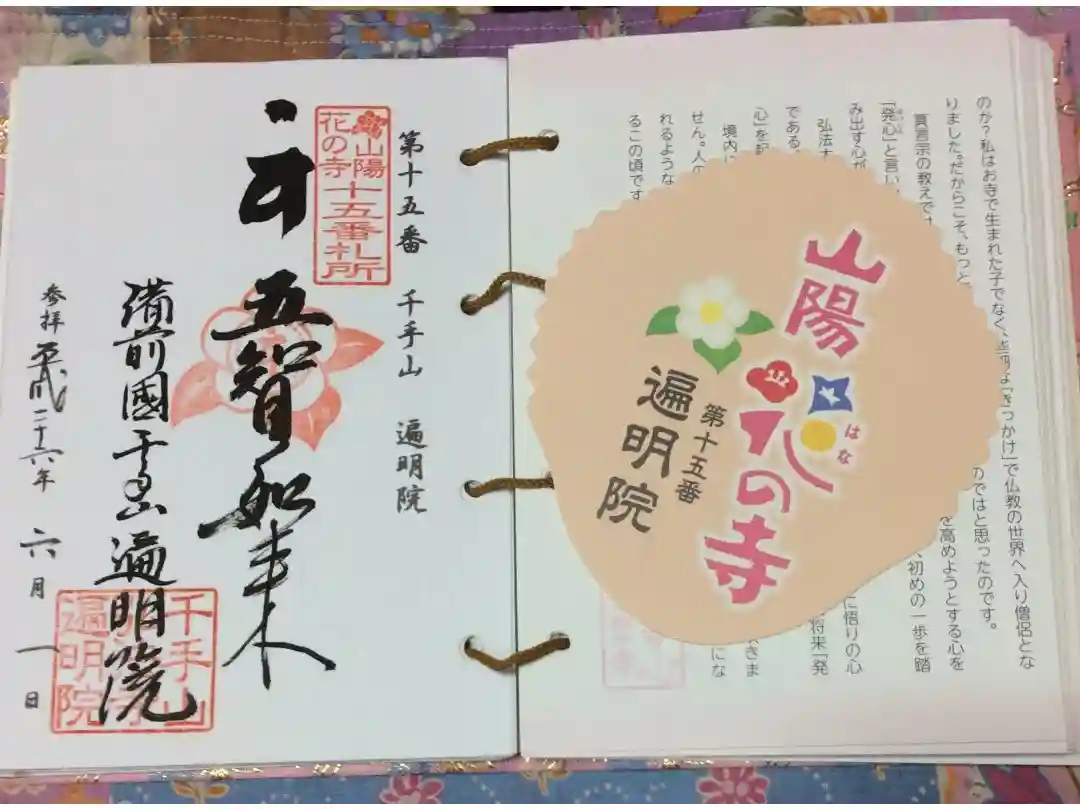 第十五番 千手山 遍明院
山陽
花の寺
十五番札所
五智如来
備前國千手山遍明院
千手山
遍明院
参拝 平成二十六年 六月 一日
山陽
花の寺
はな
第十五番
遍明院
のか?私はお寺で生まれた子でなく、「きっかけ」で仏教の世界へ入り僧侶とな
りました。だからこそ、もっと のではと思ったのです。
真言宗の教えで を高めようとする心を
「発心」と言い 初めの一歩を踏
み出す心が
弘法 に悟りの心
である 将来「発
心」を
境内に きま
せん。人の にな
れるような
るこの頃です